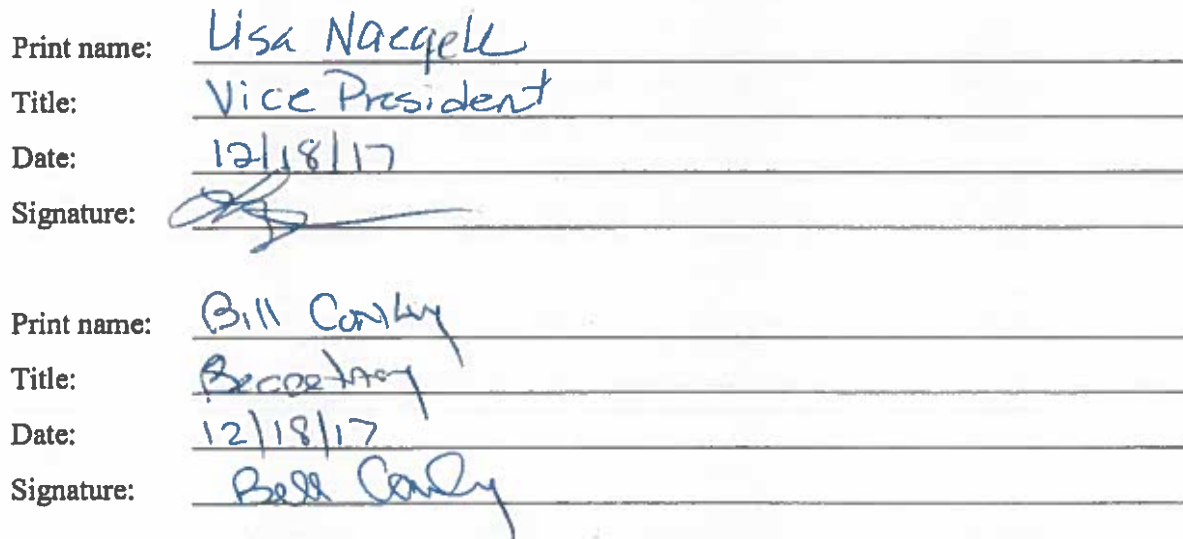 Print name: Lisa Naegele
Title: Vice President
Date: 12/18/17
Signature:
Print name: Bill Conley
Title: Secretary
Date: 12/18/17
Signature: Bill Conley